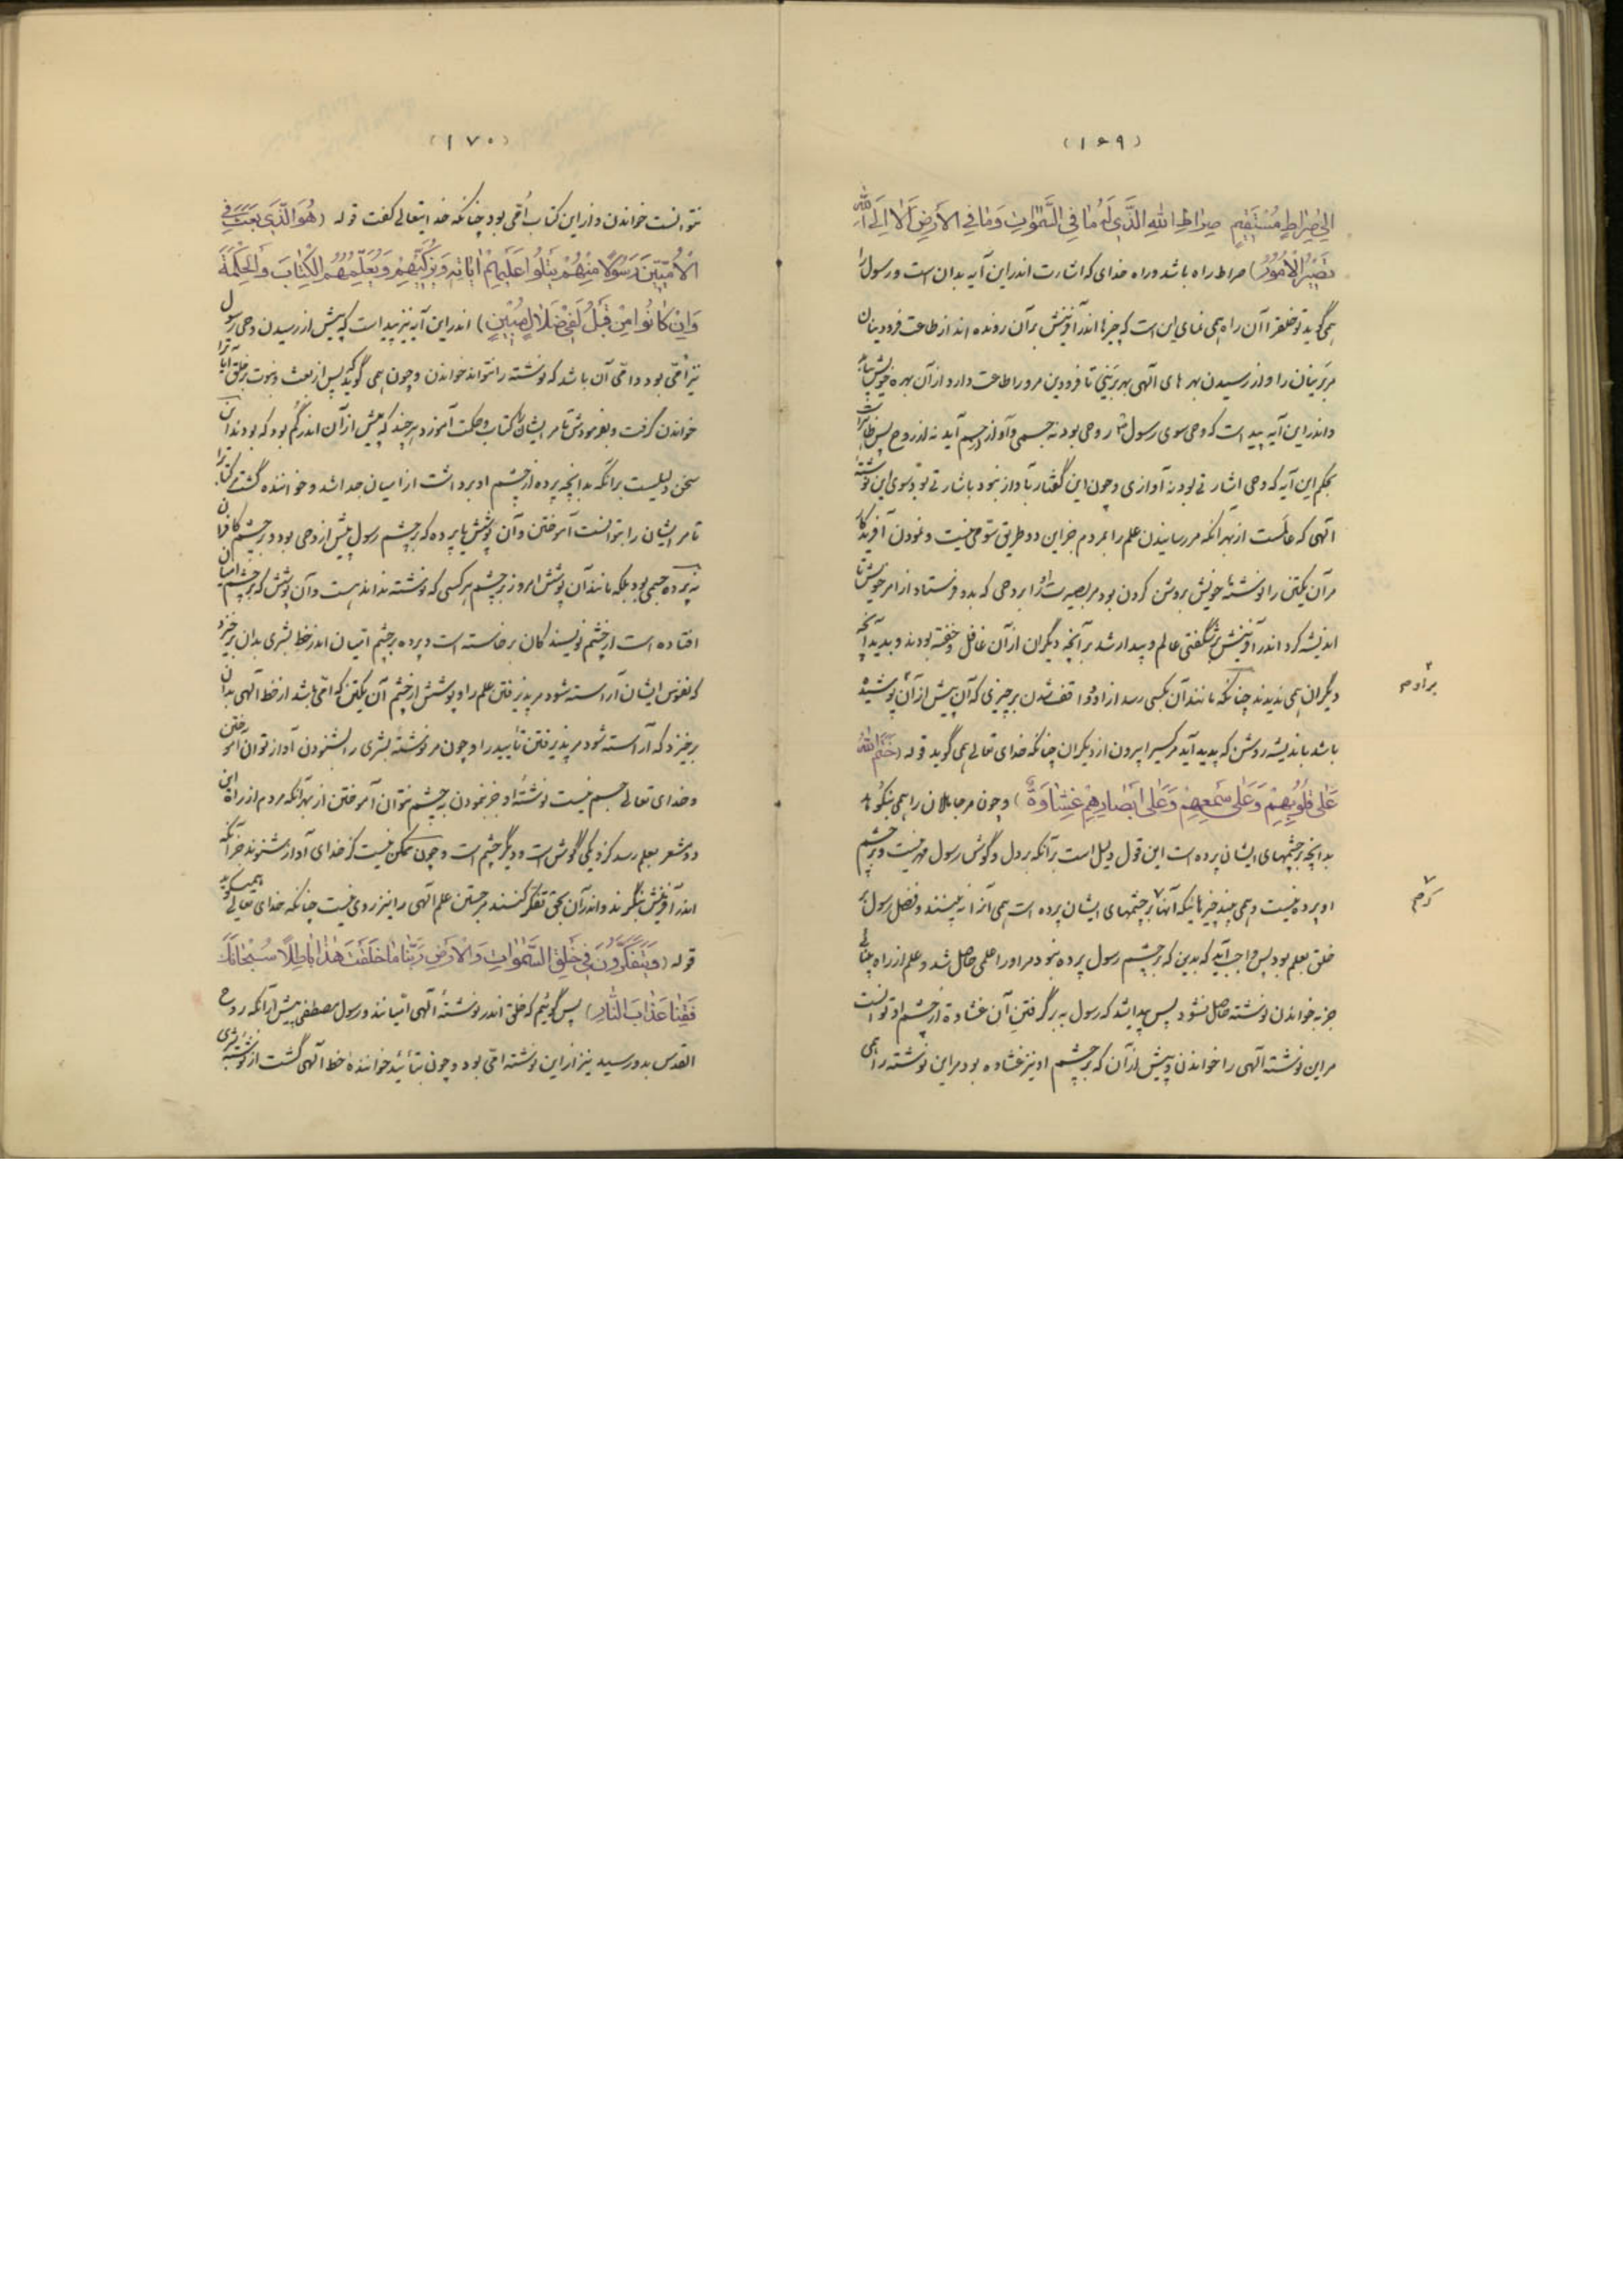 (۱۶۹)
الی صِراطٍ مُسْتَقیمٍ صِراطِ اللهِ الَّذی لَهُ مٰا فِی السَّمٰواتِ وَمٰا فِی الاَرْضِ اَلاٰ اِلَی اللهِ
تَصیرُ الاُمُورُ) صراط راه باشد و راه خدای که اشارت اندر این آیه بدان است و رسول را
همی گوید تو خلق را آن راه همی نمای این است که چیزها اندر آفرینش بر آن رونده اند از طاعت فرودینان
مر برینان را و از رسیدن بهر های آلهی بهر برینی تا فرودین مر ورا طاعت دارد و از آن بهره خویش بیابد
و اندر این آیه پیداست که وحی سوی رسول ص روحی بود نه جسمی و آواز از جسم آید نه از روح پس ظاهر است
بحکم این آیه که وحی اشارتی بود نه آوازی و چون این گفتار بآواز نبود باشارتی بود سوی این نوشته
آلهی که عالمست از بهر آنکه مر رسانیدن علم را بمردم جز این دو طریق ستومی نیست و نمودن آفریدگار
مر آن یکتن را نوشته خویش بروشن کردن بود مر بصیرت او را بروحی که بدو فرستاد از امر خویش تا
اندیشه کرد اندر آفرینش پر شگفتی عالم و بیدار شد بر آنچه دیگران از آن غافل و خفته بودند و بدید آنچه
دیگران همی ندیدند چنانکه مانند آن بکسی رسد از او و واقف شدن بر چیزی که آن پیش از آن پوشیده
باشد باندیشه روشن که پدید آید مر کسیرا بیرون از دیگران چنانکه خدای تعالی همی گوید قوله (خَتَمَ اللهُ
عَلٰی قُلُوبِهِمْ وَعَلٰی سَمْعِهِمْ وَعَلٰی اَبْصٰارِهِمْ غِشٰاوَةٌ) و چون مر جاهلان را همی بنکوهد
بدانچه بر چشمهای ایشان پرده است این قول دلیل است بر آنکه بر دل و گوش رسول مهر نیست و بر چشم
او پرده نیست و همی بیند چیزهائیکه آنها بر چشمهای ایشان پرده است همی آنرا نه بینند و فضل رسول بر
خلق بعلم بود پس واجب آید که بدین که بر چشم رسول پرده نبود مر او را علمی حاصل شد و علم از راه بینائی
جز به خواندن نوشته حاصل نشود پس پیدا شد که رسول به بر گرفتن آن غشاوة از چشم او توانست
مر این نوشته آلهی را خواندن و پیش از آن که بر چشم او نیز غشاوه بود مر این نوشته را همی
بر او م
کرم
(۱۷۰)
نتوانست خواندن و از این کتاب اُمّی بود چنانکه خدایتعالی گفت قوله (هُوَ الَّذی بَعَثَ فِی
الاُمِّیّینَ رَسُولاً مِنْهُمْ یَتْلُوا عَلَیْهِمْ اٰیاتِهِ وَیُزَکّیهِمْ وَیُعَلِّمُهُمُ الْکِتٰابَ وَالْحِکْمَةَ
وَاِنْ کٰانُوا مِنْ قَبْلُ لَفی ضَلاٰلٍ مُبینٍ) اندر این آیه نیز پیداست که پیش از رسیدن وحی رسول
نیز امّی بود و امّی آن باشد که نوشته را نتواند خواندن و چون همی گوید که پس از بعث و نبوت بر خلق آیاترا
خواندن گرفت و بفرمودش تا مر ایشان را کتاب و حکمت آموزد هر چند که پیش از آن اندر گم بود که بودند این
سخن دلیلست بر آنکه بدانچه پرده از چشم او برداشت از امیان جدا شد و خواننده گشت کتابرا
تا مر ایشان را بتوانست آموختن و آن پوشش یا پرده که بر چشم رسول پیش از وحی بود و بر چشم کافران
نه پرده جسمی بود بلکه مانند آن پوشش امروز بر چشم هر کسی که نوشته نداند هست و آن پوشش که بر چشم امیان
افتاده است از چشم نویسندگان برخاسته است و پرده بر چشم امّیان اندر خط بشری بدان برخیزد
که نفوس ایشان آراسته شود مر پذیرفتن علم را و پوشش از چشم آن یکتن که امّی باشد از خط آلهی بدان
برخیزد که آراسته شود مر پذیرفتن تأیید را و چون مر نوشتهٔ بشری را بشنودن آواز توان آموختن
و خدای تعالی جسم نیست نوشتهٔ او جز بنمودن به چشم نتوان آموختن از بهر آنکه مردم از راه این
دو شعر بعلم رسد کزو یکی گوش است و دیگر چشم است و چون ممکن نیست کز خدای آواز شنوند جز آنکه
اندر آفرینش بنگرند و اندر آن بحق تفکر کنند مر جستن علم آلهی را نیز روی نیست چنانکه خدای تعالی همیگوید
قوله (وَیَتَفَکَّرُونَ فی خَلْقِ السَّمٰواتِ وَالاَرْضِ رَبَّنٰا مٰا خَلَقْتَ هٰذٰا بٰاطِلاً سُبْحٰانَکَ
فَقِنٰا عَذٰابَ النّٰارِ) پس گوئیم که خلق اندر نوشتهٔ آلهی امّیانند و رسول مصطفی پیش از آنکه روح
القدس بدو رسید نیز از این نوشته امّی بود و چون بتأئید خوانندهٔ خط آلهی گشت از نوشتهٔ بشری